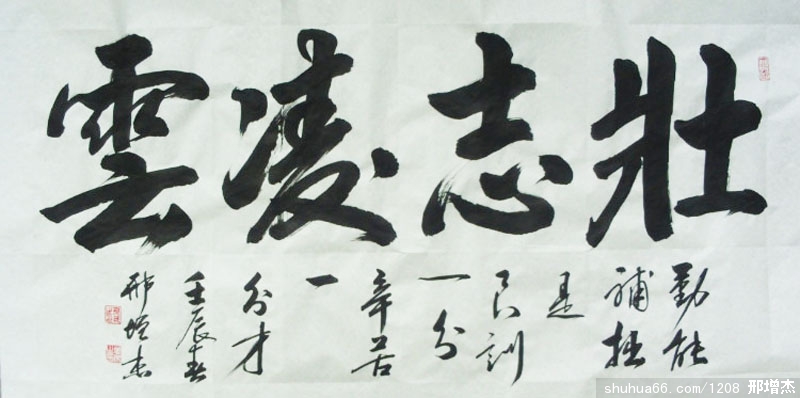 壯志凌雲
勤能
補拙
是
良訓
一分
辛苦
一
分才
壬辰春
邢增杰
shuhua66.com/1208 邢增杰